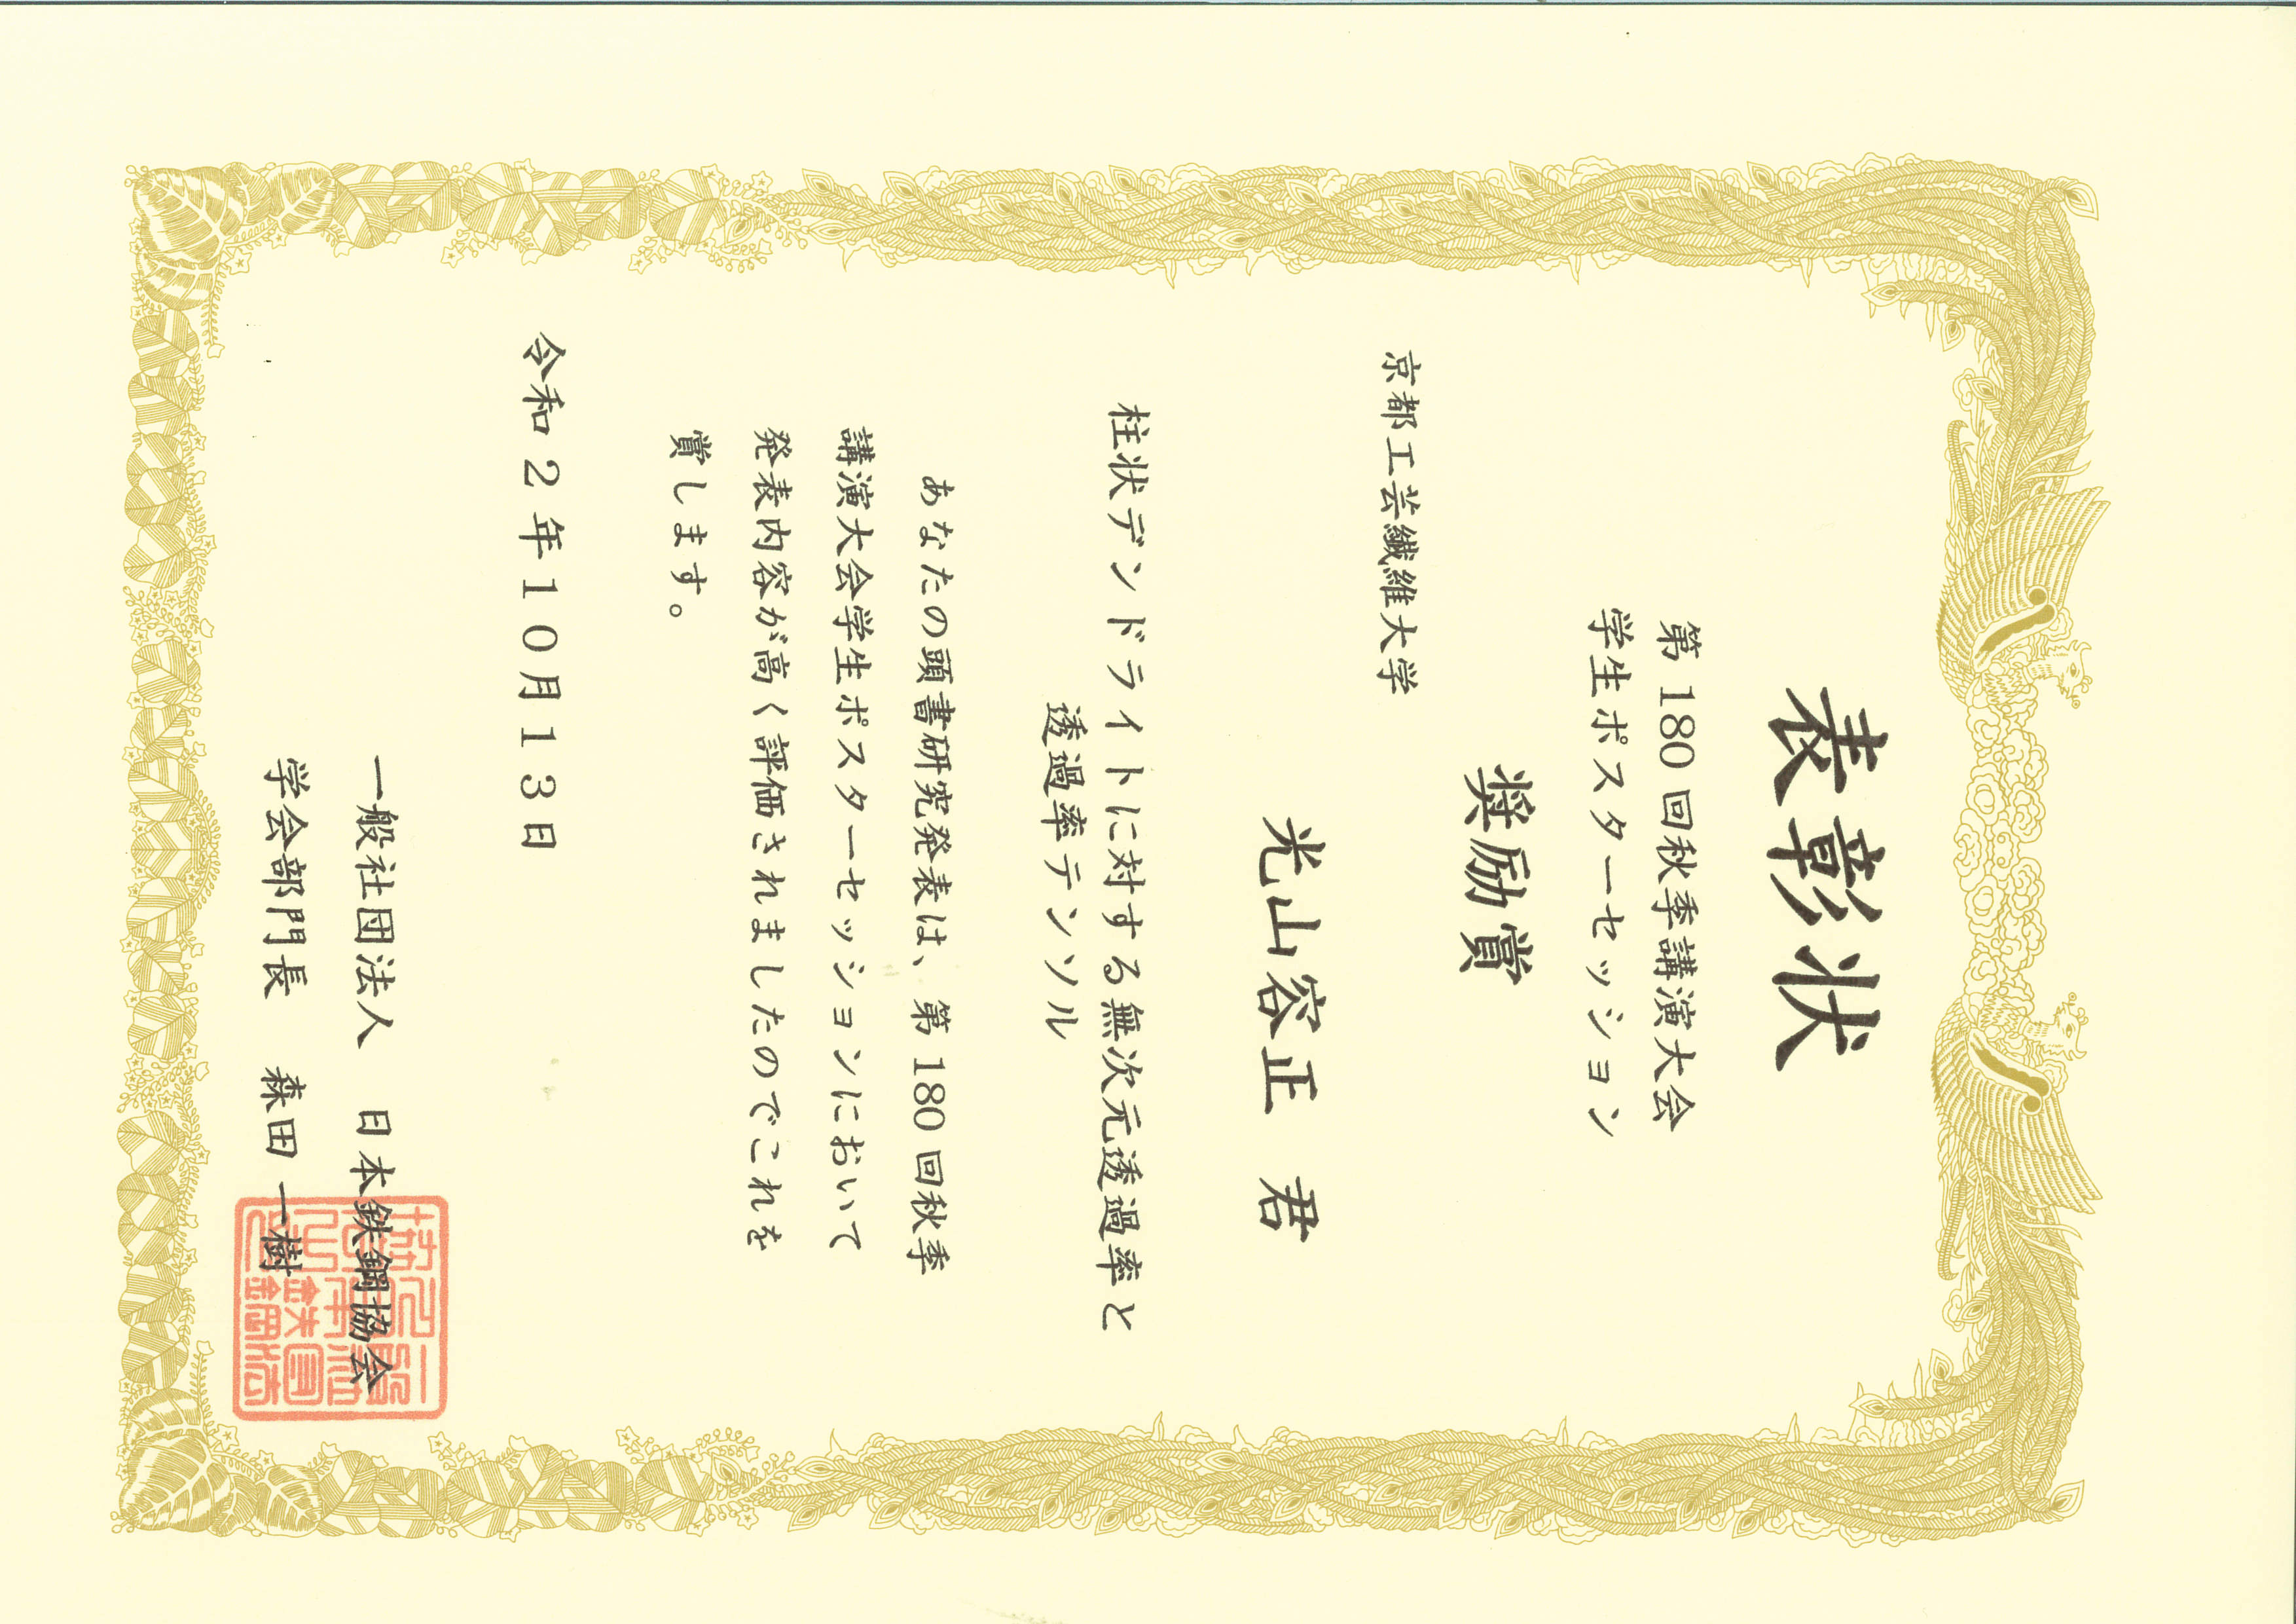 表彰状
第180回秋季講演大会
学生ポスターセッション
奨励賞
京都工芸繊維大学
光山容正 君
柱状デンドライトに対する無次元透過率と
透過率テンソル
あなたの頭書研究発表は、第180回秋季
講演大会学生ポスターセッションにおいて
発表内容が高く評価されましたのでこれを
賞します。
令和2年10月13日
一般社団法人 日本鉄鋼協会
学会部門長 森田一樹